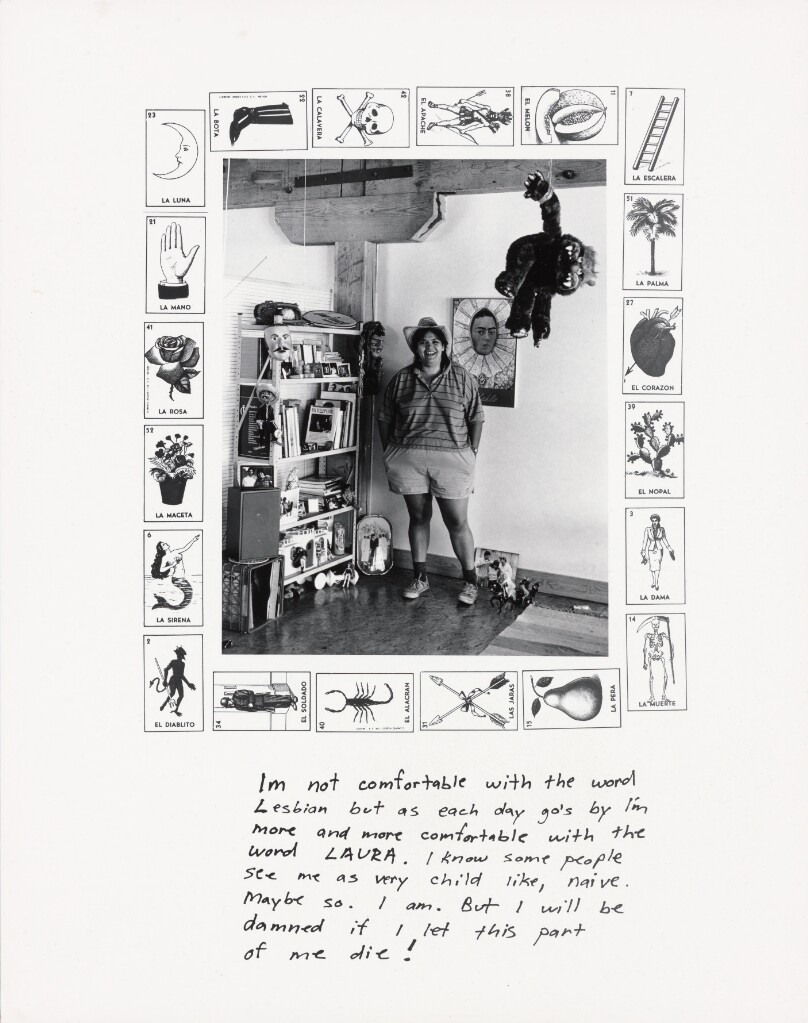 23
LA LUNA
LA BOTA
22
LA CALAVERA
42
EL APACHE
38
EL MELON
11
7
LA ESCALERA
21
LA MANO
51
LA PALMA
41
LA ROSA
27
EL CORAZON
52
LA MACETA
39
EL NOPAL
6
LA SIRENA
3
LA DAMA
2
EL DIABLITO
14
LA MUERTE
34
EL SOLDADO
40
EL ALACRAN
31
LAS JARAS
15
LA PERA
Im not comfortable with the word
Lesbian but as each day go's by I'm
more and more comfortable with the
word LAURA. I know some people
see me as very child like, naive.
Maybe so. I am. But I will be
damned if I let this part
of me die!